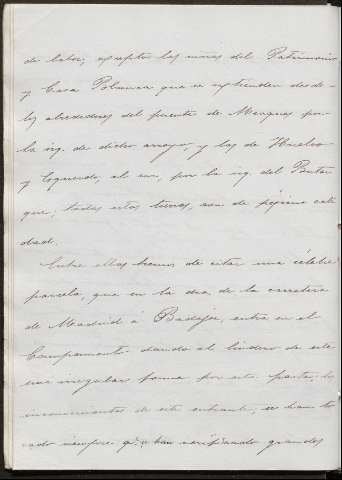 de labor, excepto las unas del Patrimonio
y Casa Polanca que se extienden desde
los alrededores del puente de Meaques por
la izq. de dicho arroyo, y las de Huelva
y Izquierdo, al sur, por la izq. del Porta-
que; todas estas tierras, son de pésima cali
dad.
Entre ellas hemos de citar una célebre
parcela, que en la dra. de la carretera
de Madrid á Badajoz, entra en el
Campamento dando al lindero de este
una irregular forma por esta parte; los
inconvenientes de este entrante, se han to
cado siempre q. se han verificado grandes